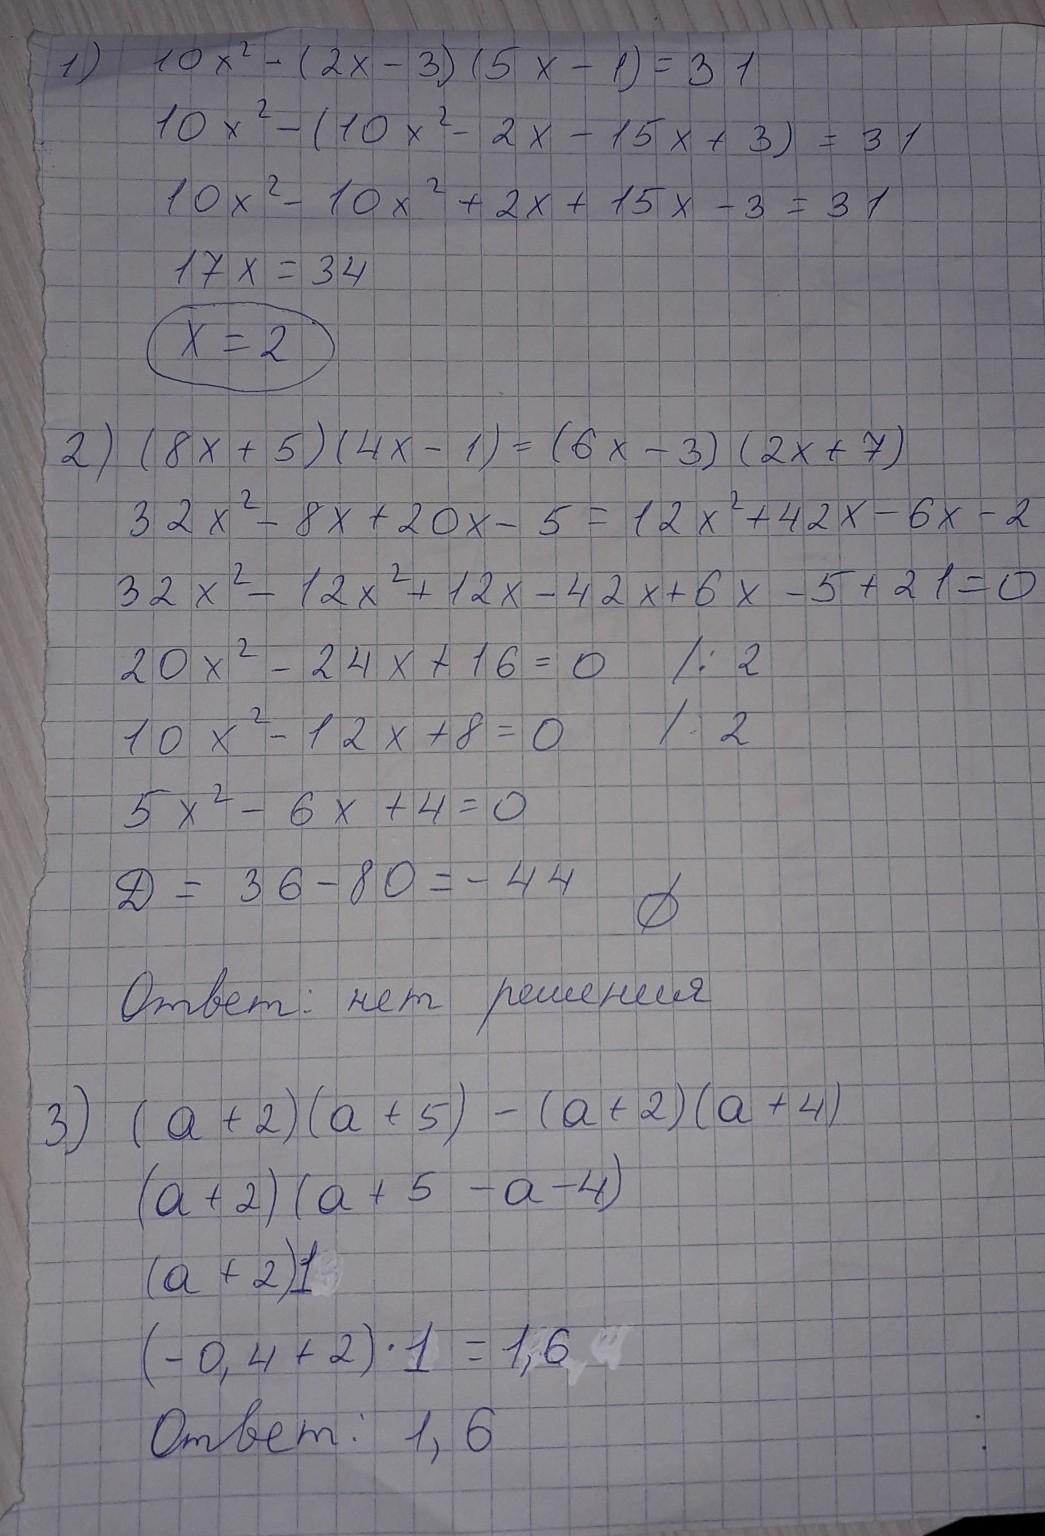 1) 10x² - (2x - 3)(5x - 1) = 31
10x² - (10x² - 2x - 15x + 3) = 31
10x² - 10x² + 2x + 15x - 3 = 31
17x = 34
x = 2
2) (8x + 5)(4x - 1) = (6x - 3)(2x + 7)
32x² - 8x + 20x - 5 = 12x² + 42x - 6x - 2
32x² - 12x² + 12x - 42x + 6x - 5 + 21 = 0
20x² - 24x + 16 = 0 /: 2
10x² - 12x + 8 = 0 /: 2
5x² - 6x + 4 = 0
Д = 36 - 80 = -44 ∅
Ответ: нет решения
3) (a + 2)(a + 5) - (a + 2)(a + 4)
(a + 2)(a + 5 - a - 4)
(a + 2)1
(-0,4 + 2) · 1 = 1,6
Ответ: 1,6